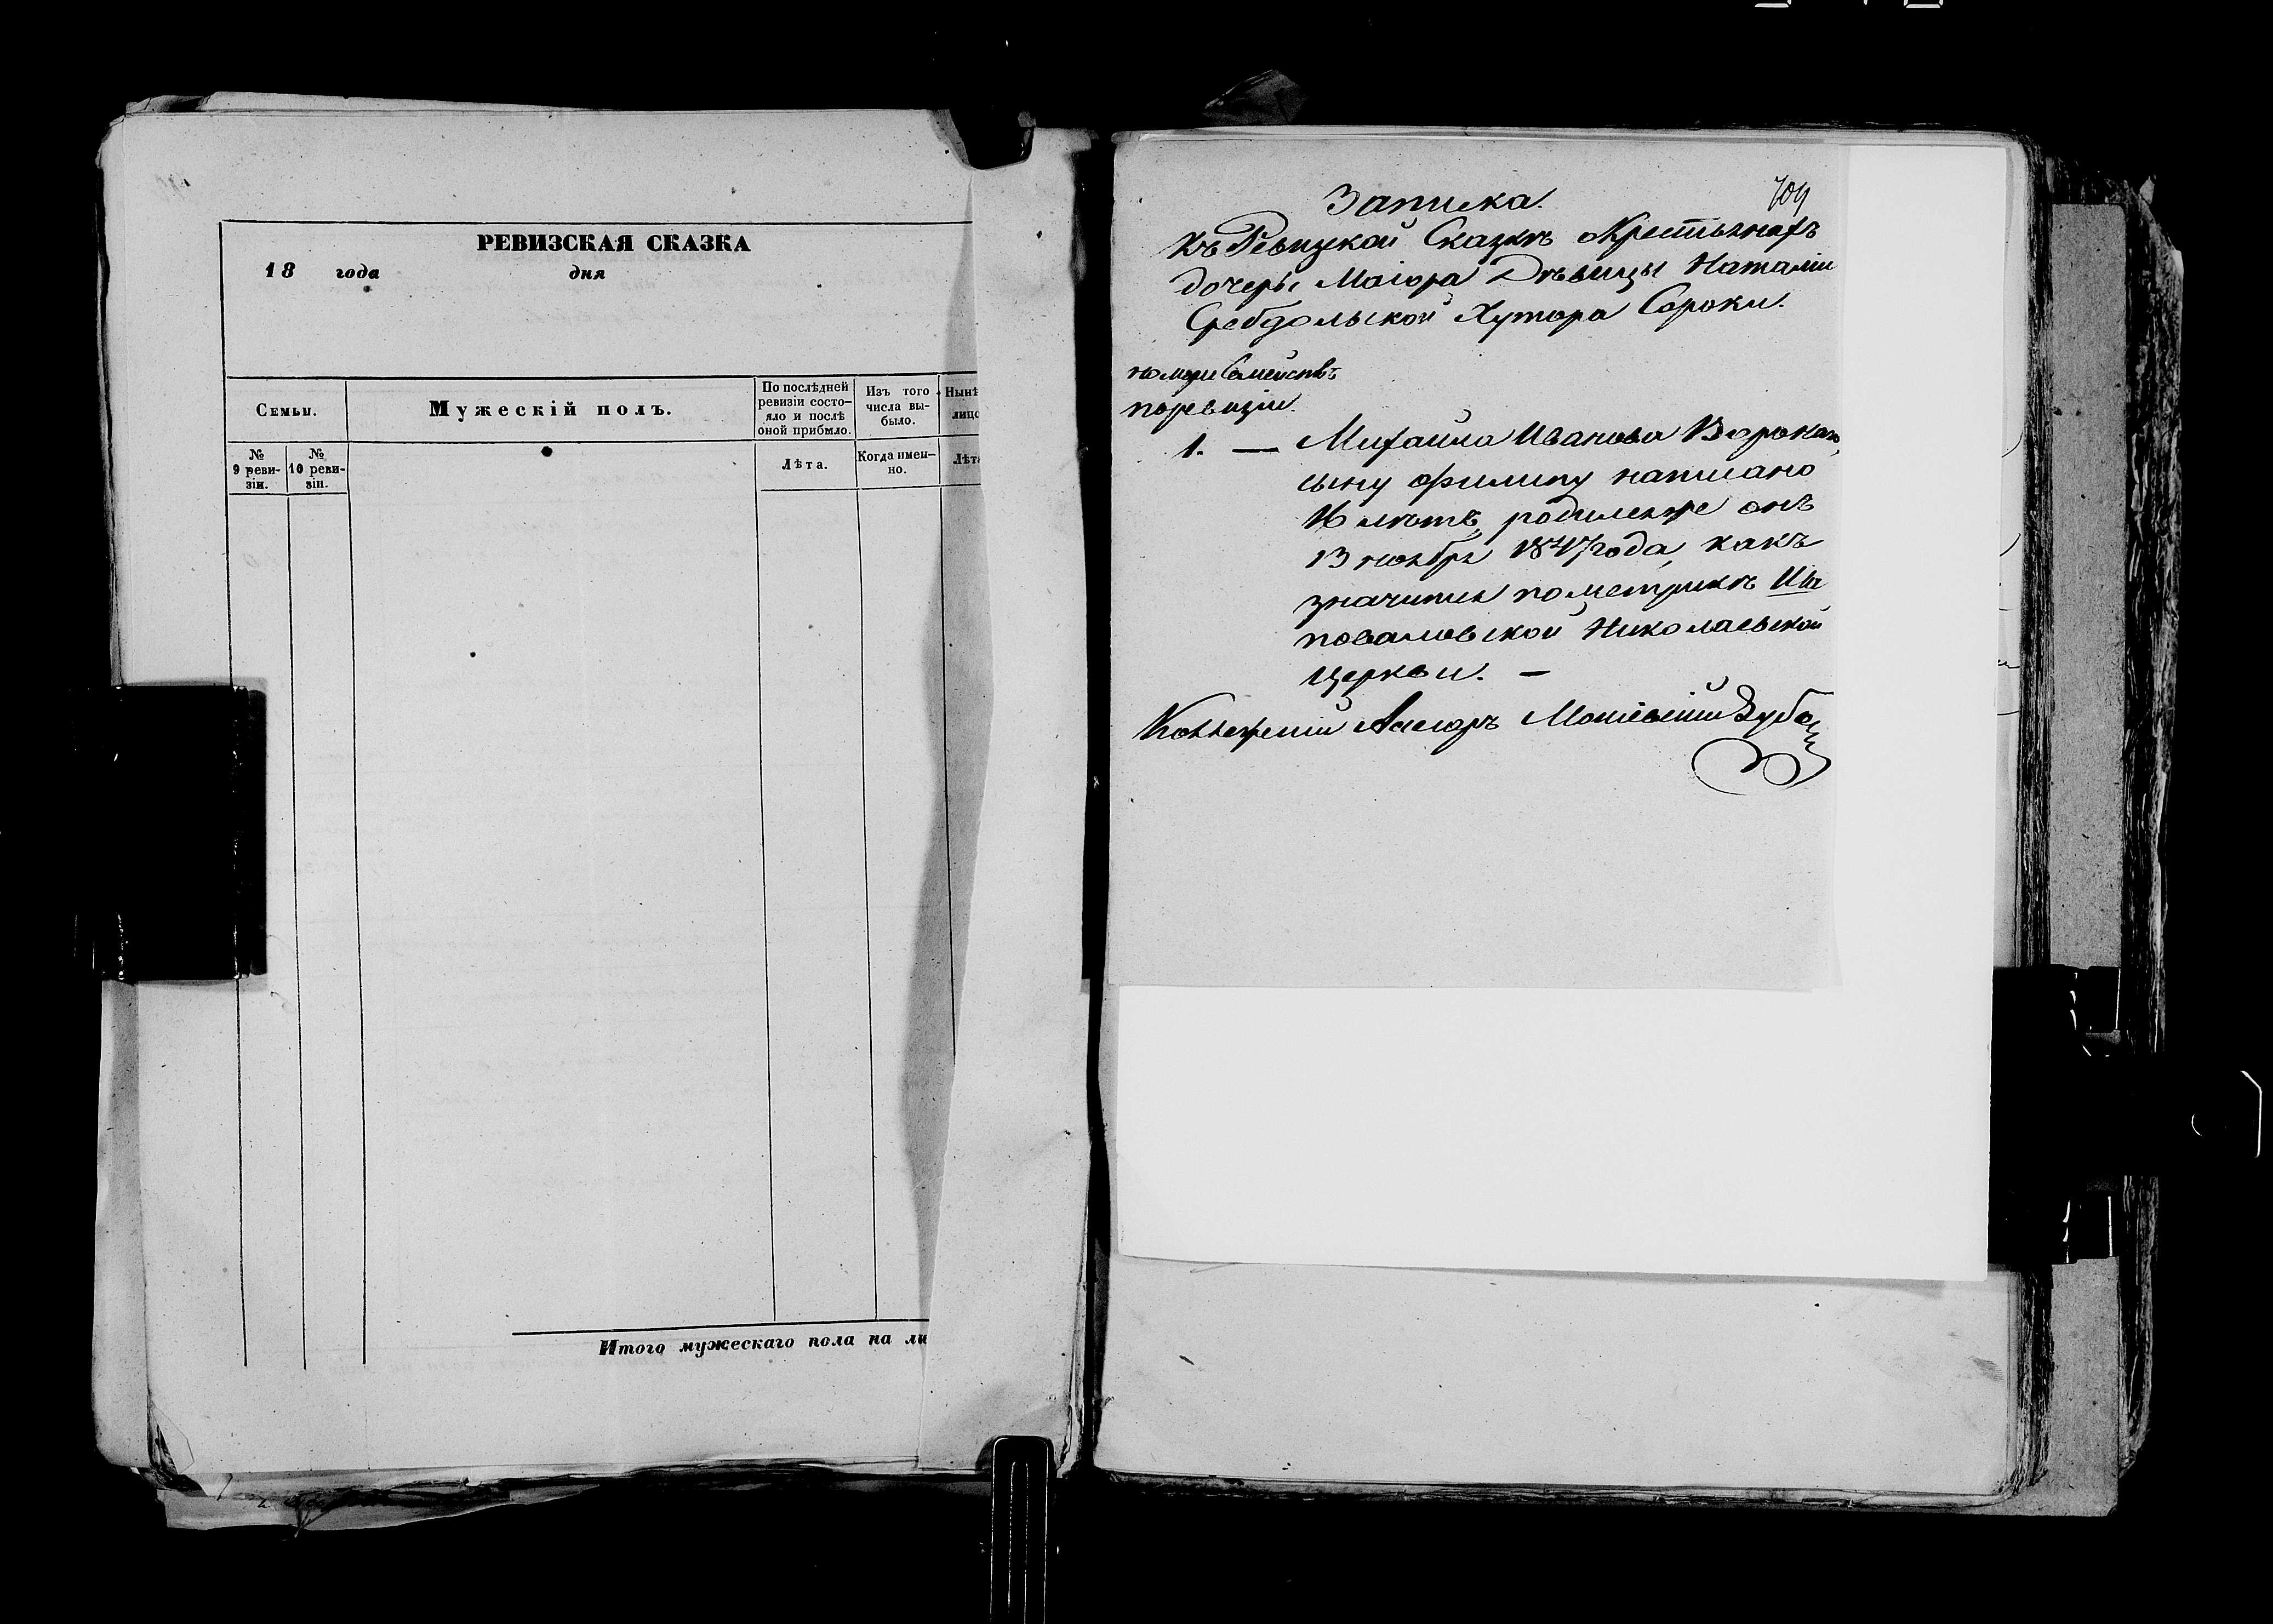 РЕВИЗСКАЯ СКАЗКА
18 года дня
Семьи.
Мужескій полъ.
По послѣдней ревизіи состо-
яло и послѣ
оной прибыло.
Изъ того
числа вы-
было.
Нынѣ
лицо
№
9 реви-
зіи.
№
10 реви-
зіи.
Лѣта.
Когда имен-
но.
Лѣта
Итого мужескаго пола на ли
709
Записка.
Къ Ревизской Сказкѣ о Крестьянахъ
дочери Маіора Дѣвицы Наталіи
Сребдольской Хутора Сороки.
номери Семействъ
поревизіи.
1. — Михаила Иванова
сыну Филипу написано
лѣтъ, родился же онъ
13 ноября 1847 года, какъ
значится по метрикѣ Ша
поваловской Николаевской
церкви. —
Коллежскій Асесоръ